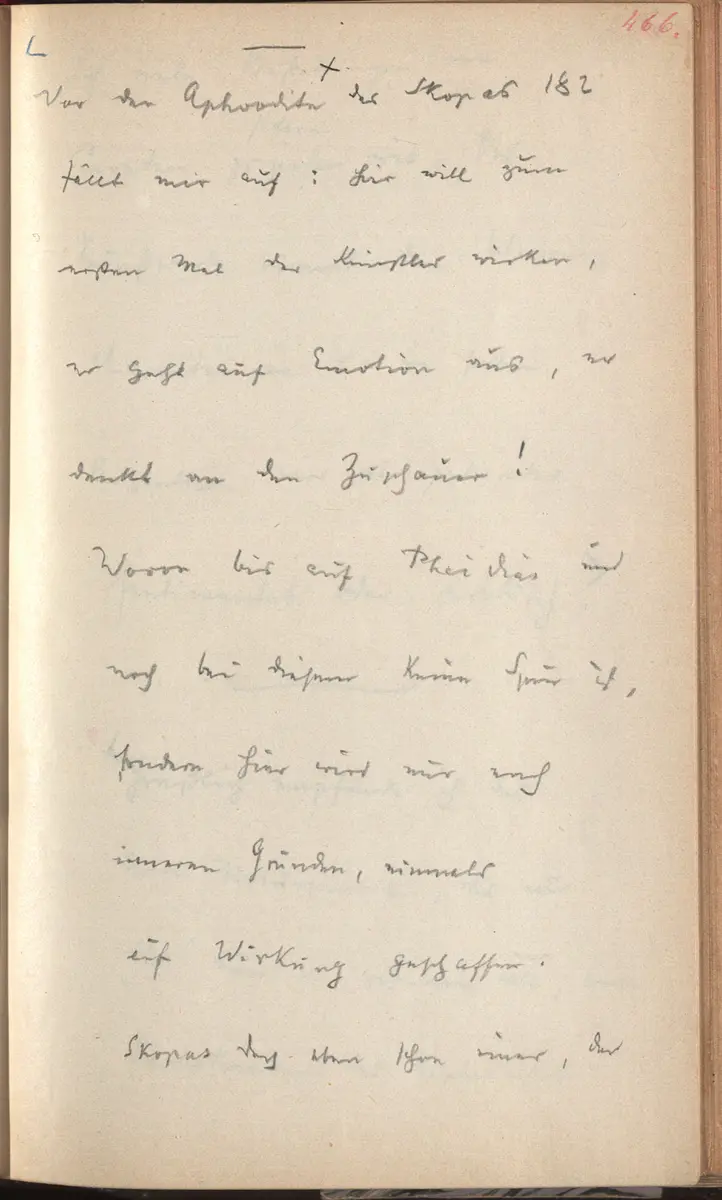 466.
L
Vor der Aphrodite × des Skopas 182
fällt mir auf: hier will zum
ersten Mal der Künstler wirken,
er geht auf Emotion aus, er
denkt an den Zuschauer!
Wovon bis auf Pheidias und
noch bei diesem keine Spur ist,
sondern hier wird nur nach
inneren Gründen, niemals
auf Wirkung geschaffen.
Skopas doch eben schon einer, der